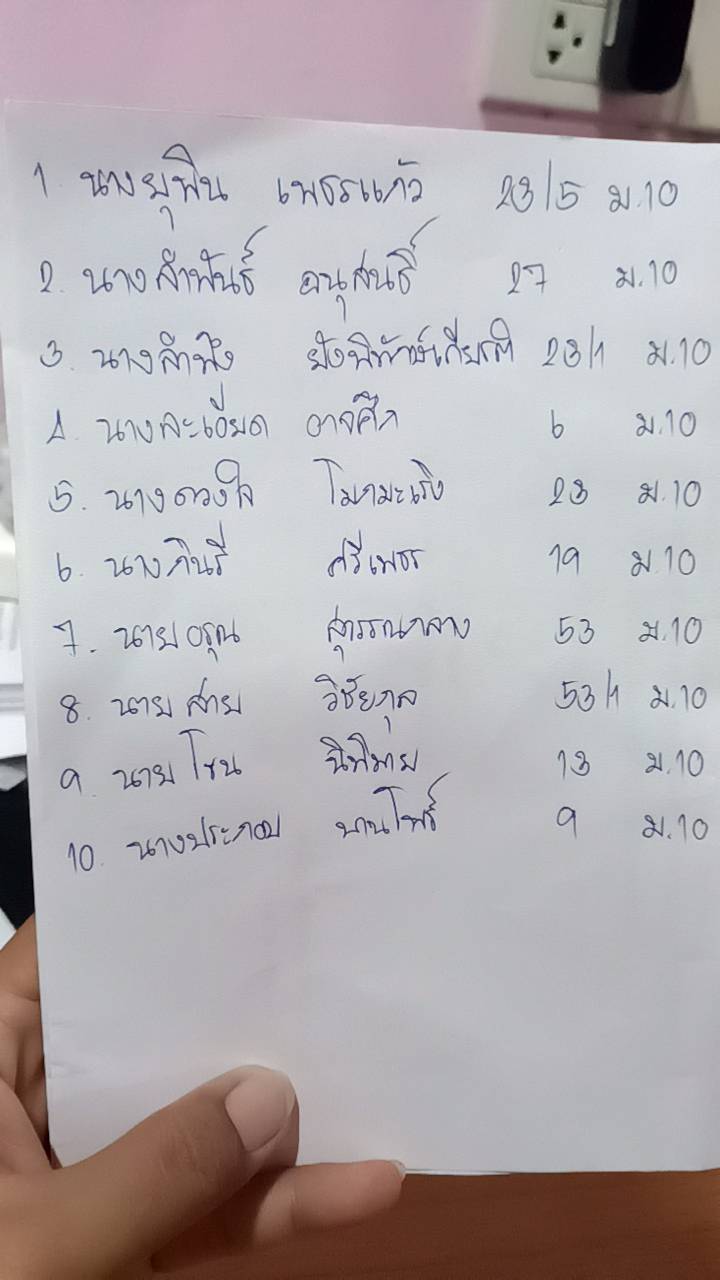 1. นางยุพิน เพชรแก้ว 23/5 ม.10
2. นางสำพันธ์ อนุสนธิ์ 27 ม.10
3. นางลำพึง ยังพิทักษ์เกียรติ 23/1 ม.10
4. นางละเอียด อาจศึก 6 ม.10
5. นางดวงใจ โมกมะเริง 23 ม.10
6. นางกินรี ศรีเพชร 19 ม.10
7. นายอรุณ สุวรรณกลาง 53 ม.10
8. นายสาย วิชัยกุล 53/1 ม.10
9. นายโชน 13 ม.10
10. นางประกอบ บานโพธิ์ 9 ม.10